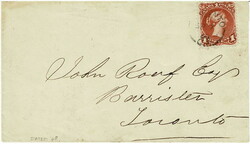 John Roaf Esq
Barrister
Toronto